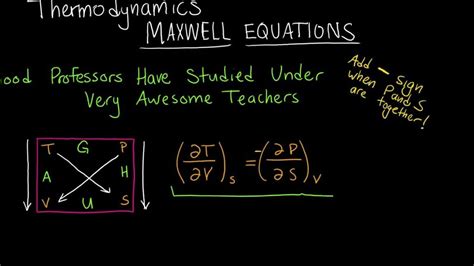 Thermodynamics
MAXWELL EQUATIONS
ood Professors Have Studied Under
Very Awesome Teachers
Add - Sign
when P and S
are together!
T G P
A H
V U S
(∂T/∂V)_S = -(∂P/∂S)_V